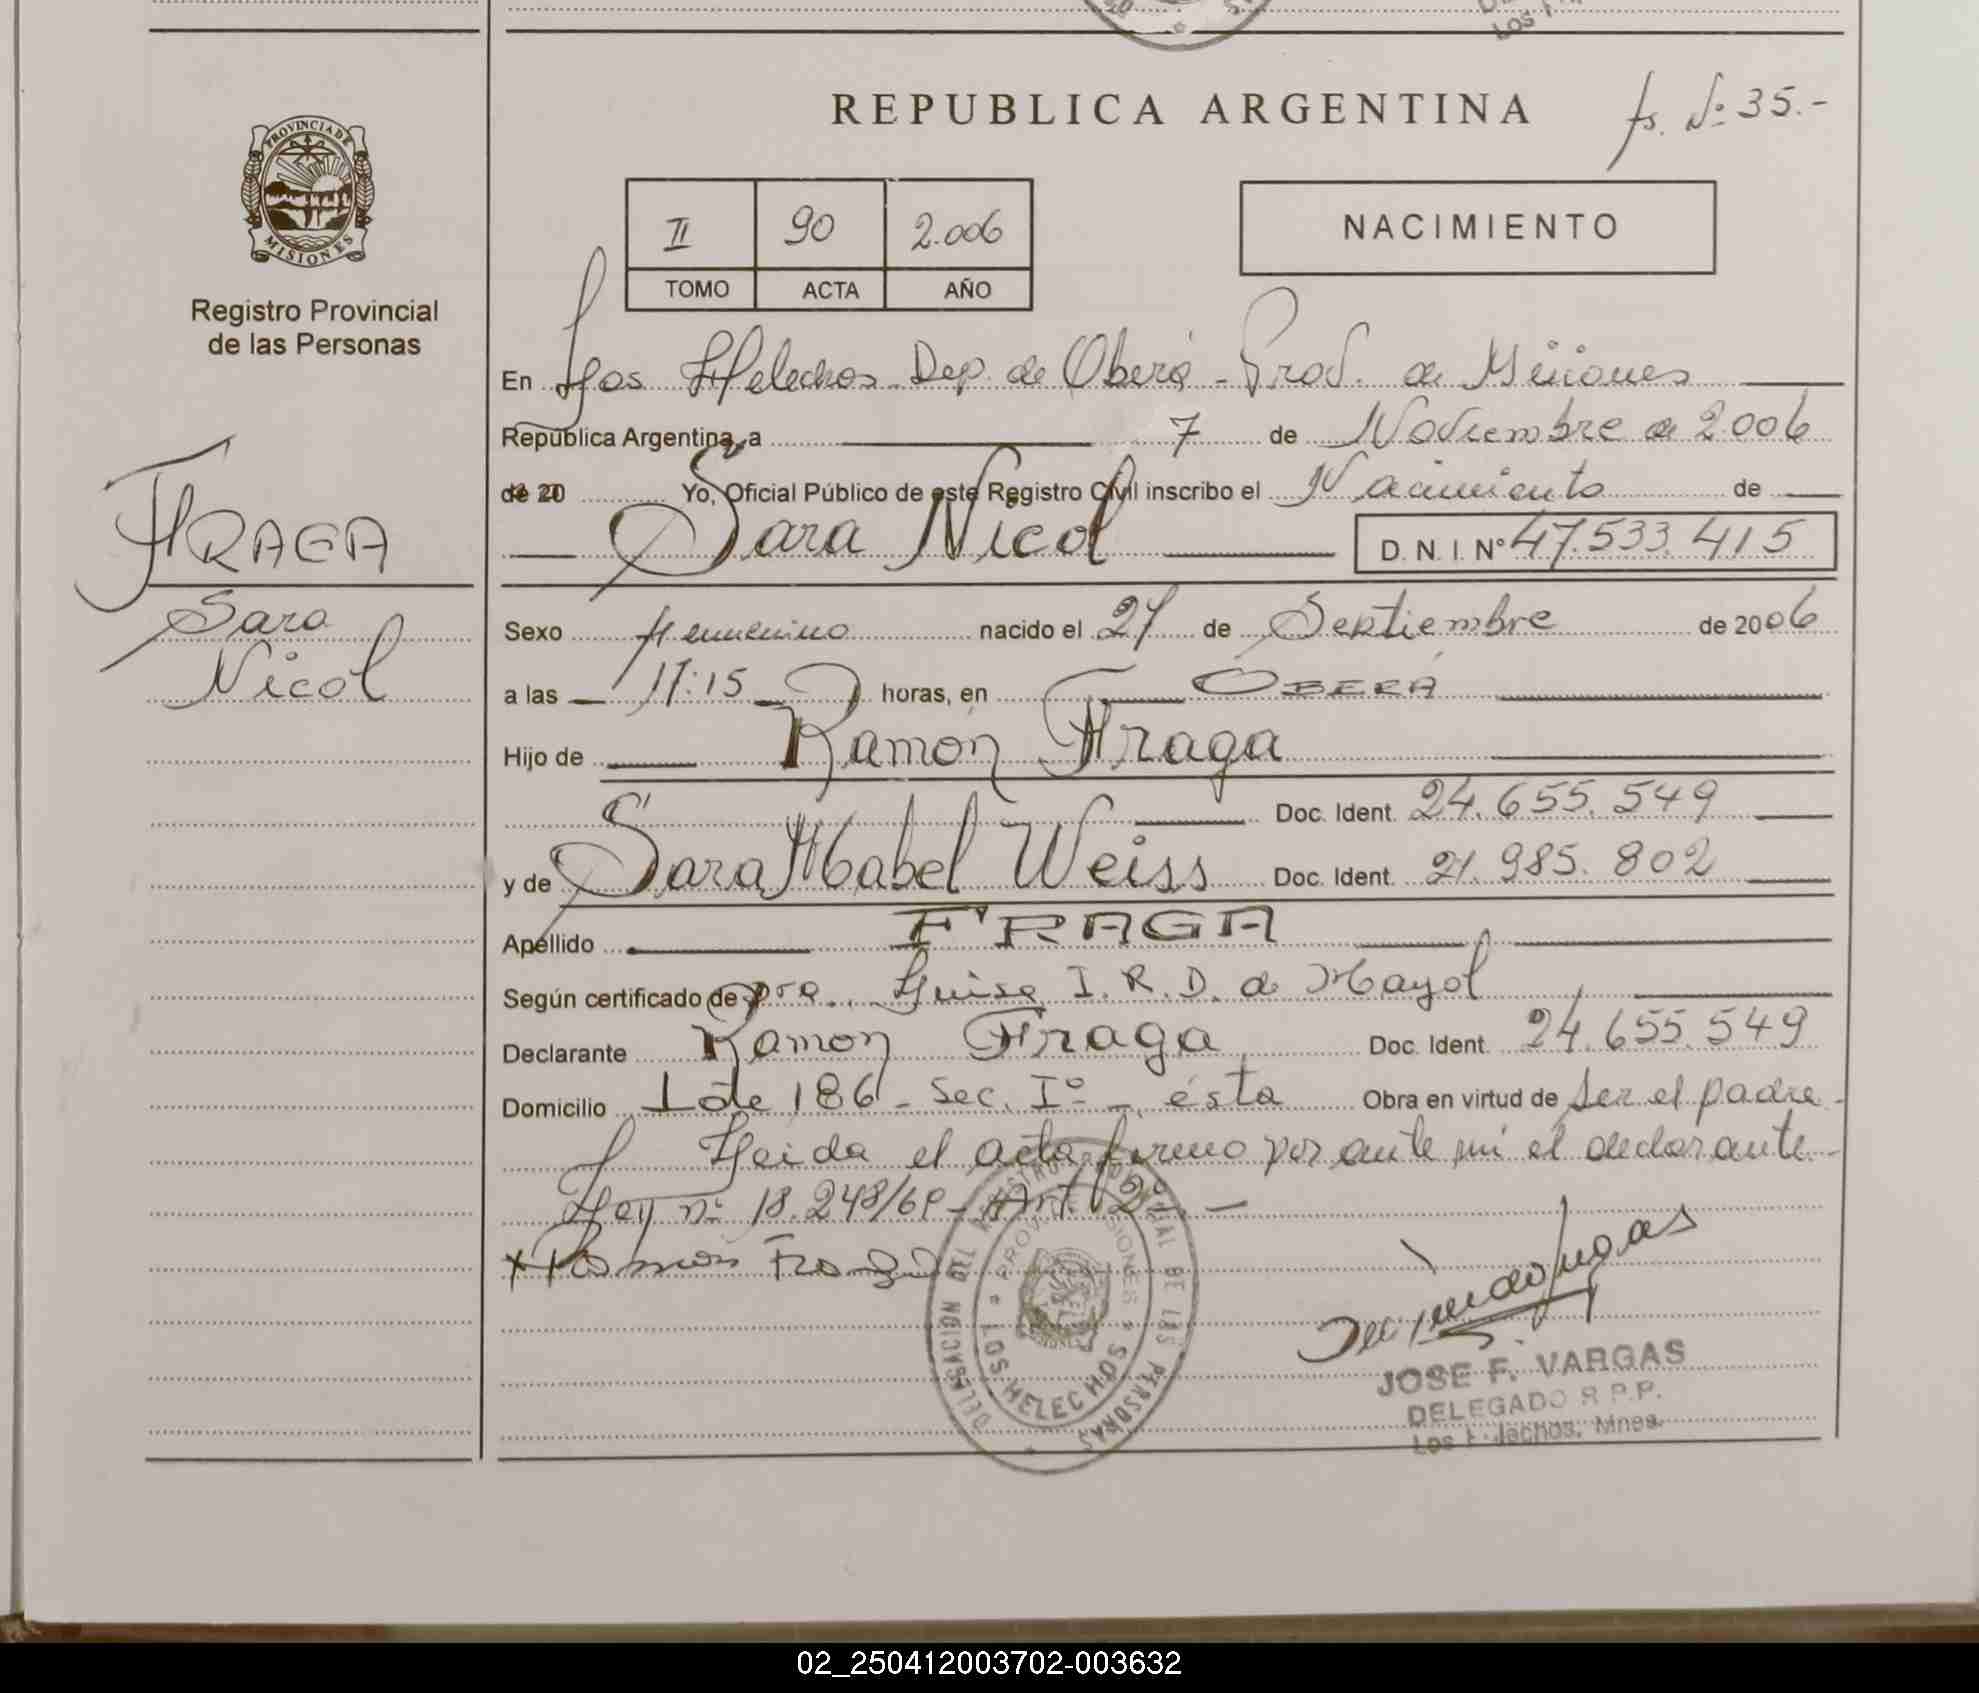 REPUBLICA ARGENTINA
fs. Nº 35.-
PROVINCIA DE
MISIONES
Registro Provincial
de las Personas
II 90 2.006
TOMO ACTA AÑO
NACIMIENTO
En Los Helechos - Dep. de Oberá - Prov. de Misiones
República Argentina, a 7 de Noviembre de 2006
de 20 Yo, Oficial Público de este Registro Civil inscribo el Nacimiento de
Sara Nicol D. N. I. Nº 47.533.415
FRAGA
Sara
Nicol
Sexo Femenino nacido el 27 de Septiembre de 2006
a las 17:15 horas, en OBERÁ
Hijo de Ramón Fraga
Doc. Ident. 24.655.549
y de Sara Mabel Weiss Doc. Ident. 21.985.802
Apellido FRAGA
Según certificado de Dra. Luisa I. R. D. de Mayol
Declarante Ramon Fraga Doc. Ident. 24.655.549
Domicilio Lote 186 - Sec. Iº - ésta Obra en virtud de ser el padre -
Leida el acta firmo por ante mi el declarante -
Ley nº 18.248/69 - Art. 2º -
x Ramon Fraga
DELEGACION DEL REGISTRO PROVINCIAL DE LAS PERSONAS
PROVINCIA DE MISIONES
LOS HELECHOS
JOSE F. VARGAS
DELEGADO R.P.P.
Los Helechos, Mnes.
02_250412003702-003632